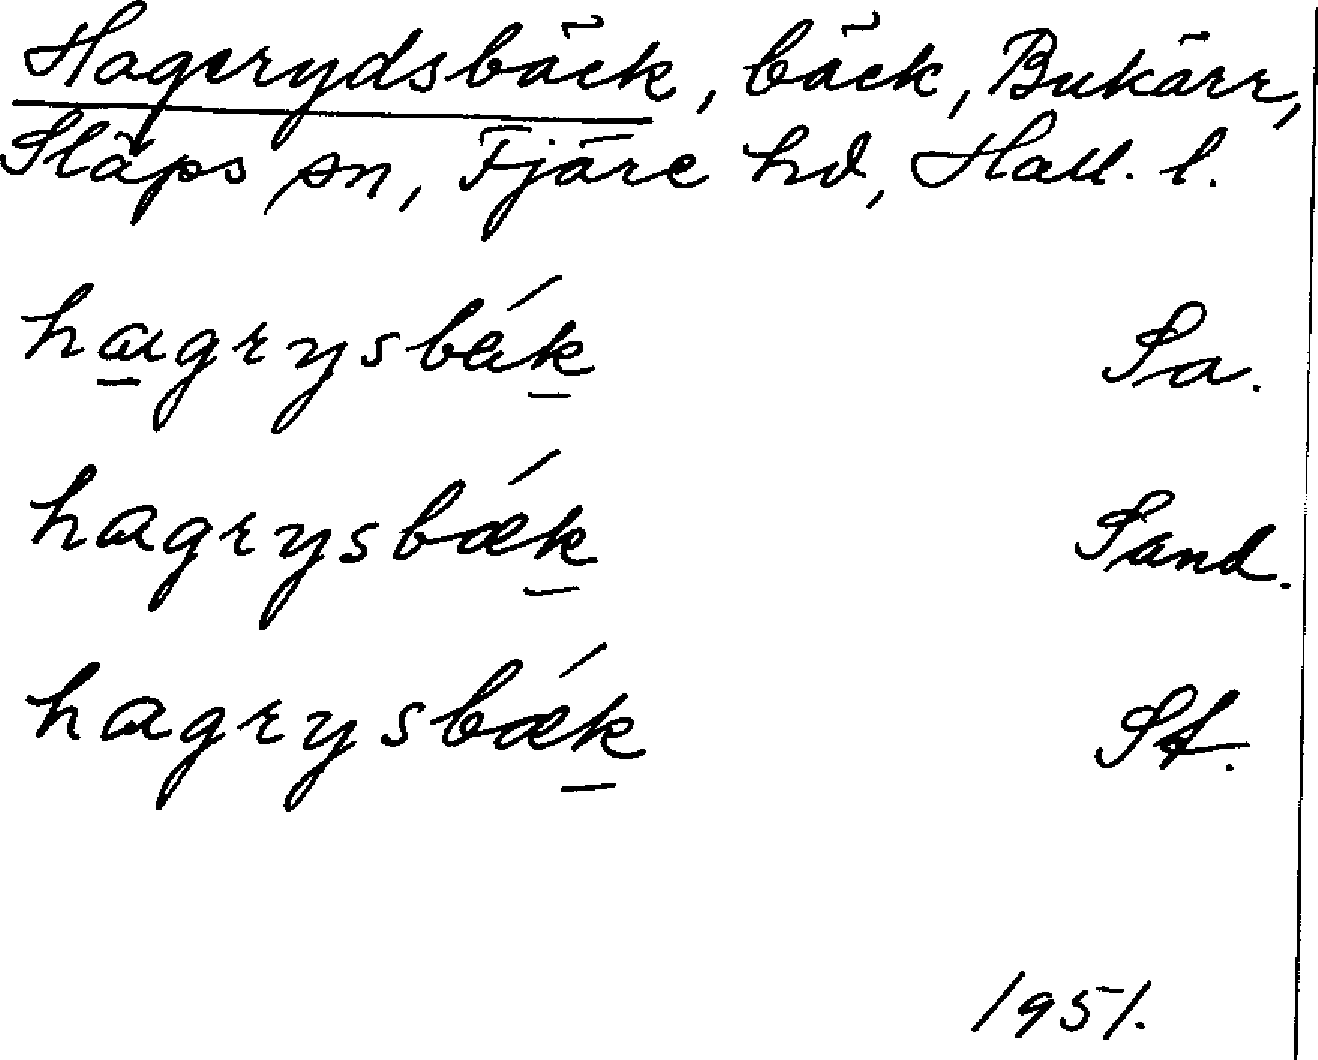 Hagerydsbäck, bäck, Bukärr,
Släps sn, Fjäre hd, Hall. l.
hagrysbǽk Sa.
hagrysbǽk Sand.
hagrysbǽk St.
1951.